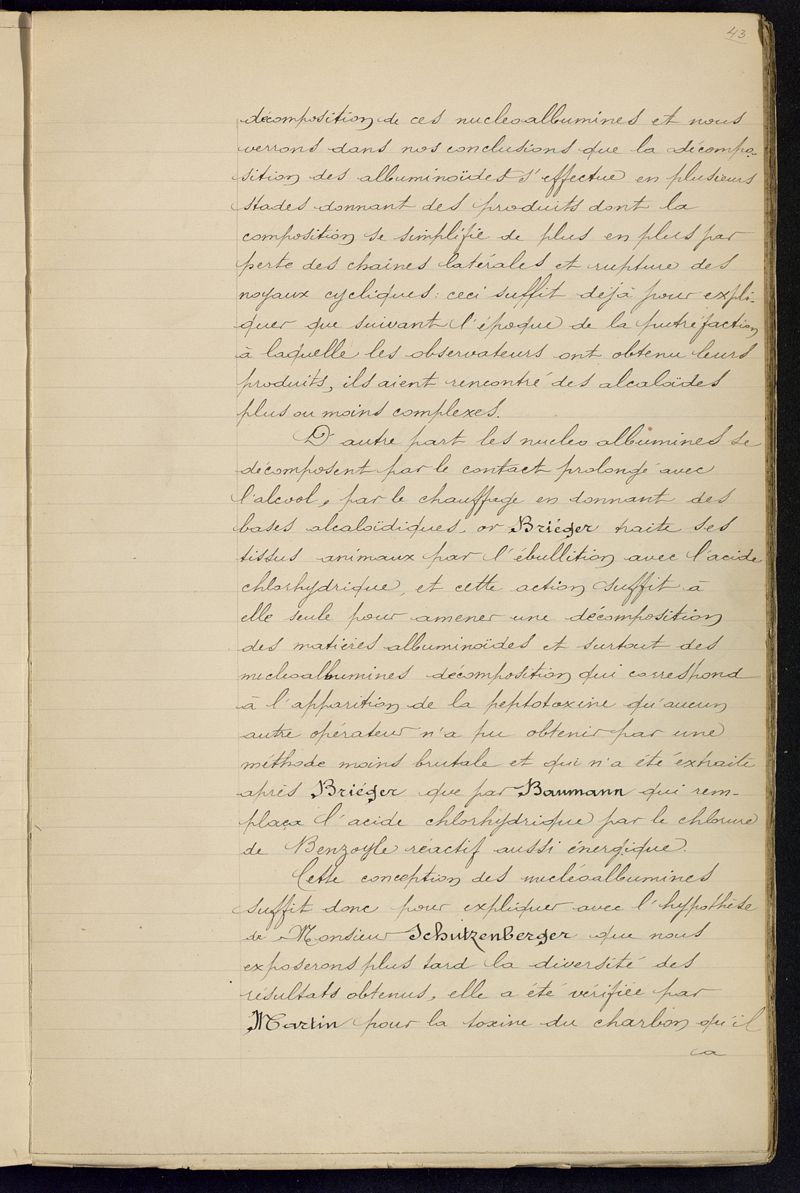 43
décomposition de ces nucleoalbumines et nous
verrons dans nos conclusions que la décompo-
sition des albuminoïdes s'effectue en plusieurs
stades donnant des produits dont la
composition se simplifie de plus en plus par
perte des chaînes latérales et rupture des
noyaux cycliques: ceci suffit déjà pour expli-
quer que suivant l'époque de la putréfaction
à laquelle les observateurs ont obtenu leurs
produits, ils aient rencontré des alcaloïdes
plus ou moins complexes.
D'autre part les nucleo albumines se
décomposent par le contact prolongé avec
l'alcool, par le chauffage en donnant des
bases alcaloïdiques, or Briéger traite ses
tissus animaux par l'ébullition avec l'acide
chlorhydrique, et cette action suffit à
elle seule pour amener une décomposition
des matières albuminoïdes et surtout des
nucleoalbumines décomposition qui correspond
à l'apparition de la peptotoxine qu'aucun
autre opérateur n'a pu obtenir par une
méthode moins brutale et qui n'a été extraite
après Briéger que par Baumann qui rem-
plaça l'acide chlorhydrique par le chlorure
de Benzoyle réactif aussi énergique.
Cette conception des nucléoalbumines
suffit donc pour expliquer avec l'hypothèse
de Monsieur Schutzenberger que nous
exposerons plus tard la diversité des
résultats obtenus, elle a été vérifiée par
Martin pour la toxine du charbon qu'il
a